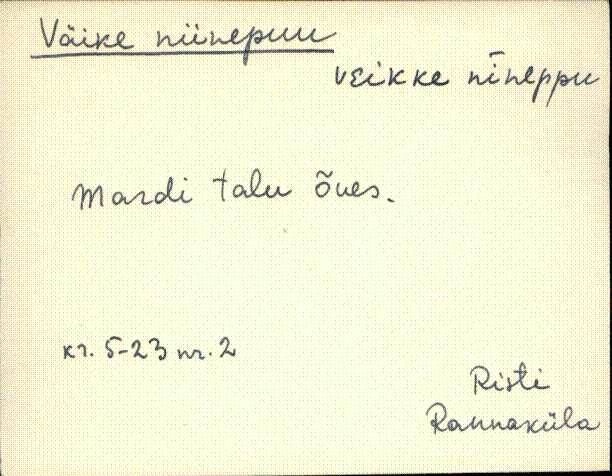 Väike niinepuu
veikke nīneppu
Mardi talu õues.
kr. 5-23 nr. 2
Risti
Rannaküla